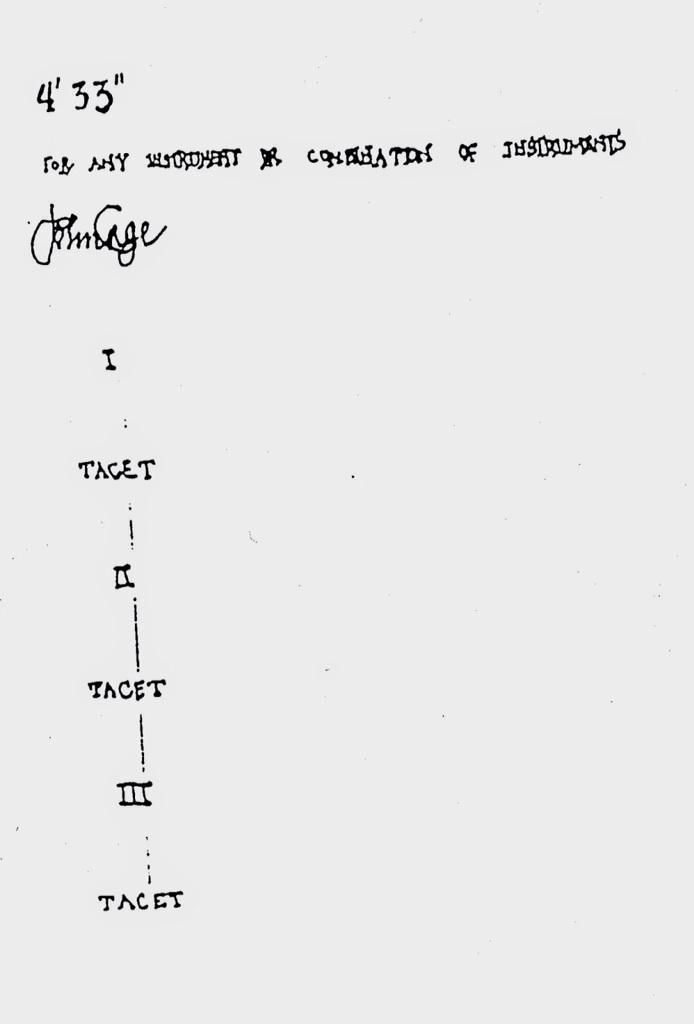 4' 33"
FOR ANY INSTRUMENT OR COMBINATION OF INSTRUMENTS
John Cage
I
TACET
II
TACET
III
TACET